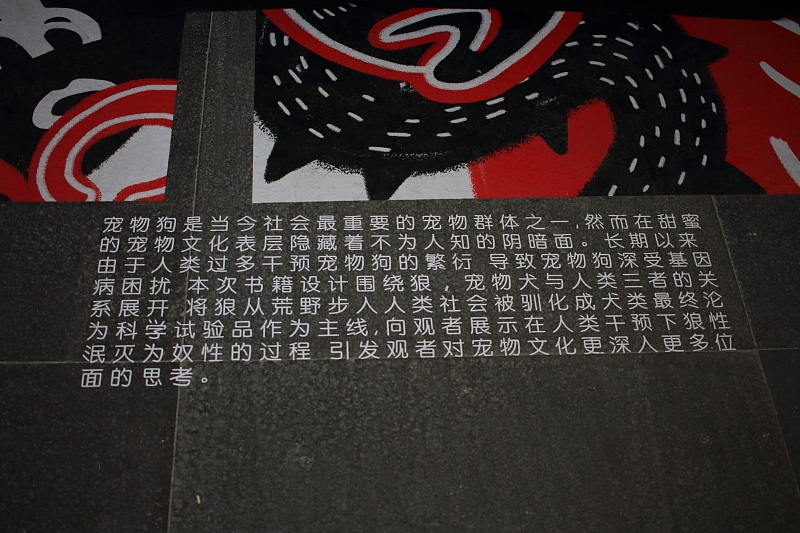 宠物狗是当今社会最重要的宠物群体之一,然而在甜蜜
的宠物文化表层隐藏着不为人知的阴暗面。长期以来
由于人类过多干预宠物狗的繁衍 导致宠物狗深受基因
病困扰 本次书籍设计围绕狼,宠物犬与人类三者的关
系展开 将狼从荒野步人人类社会被驯化成犬类最终沦
为科学试验品作为主线,向观者展示在人类干预下狼性
泯灭为奴性的过程 引发观者对宠物文化更深人更多位
面的思考。